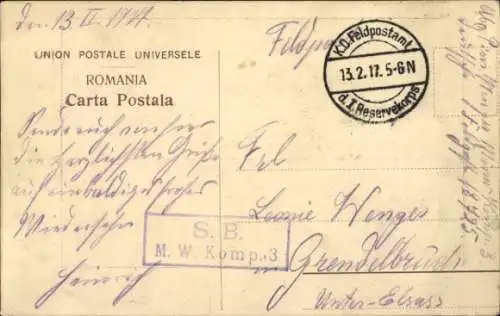 den 13. II. 1917.
UNION POSTALE UNIVERSELE
ROMANIA
Carta Postala
Feldpost
K.D. Feldpostamt
13.2.17. 5-6 N
d. I. Reservekorps
Sende euch von hier
die herzlichsten Grüße
auf ein baldiges frohes
Wiedersehn
Heinrich
S. B.
M. W. Komp. 3
Frl
Leonie Wenges
in Grendelbruch
Unter-Elsass